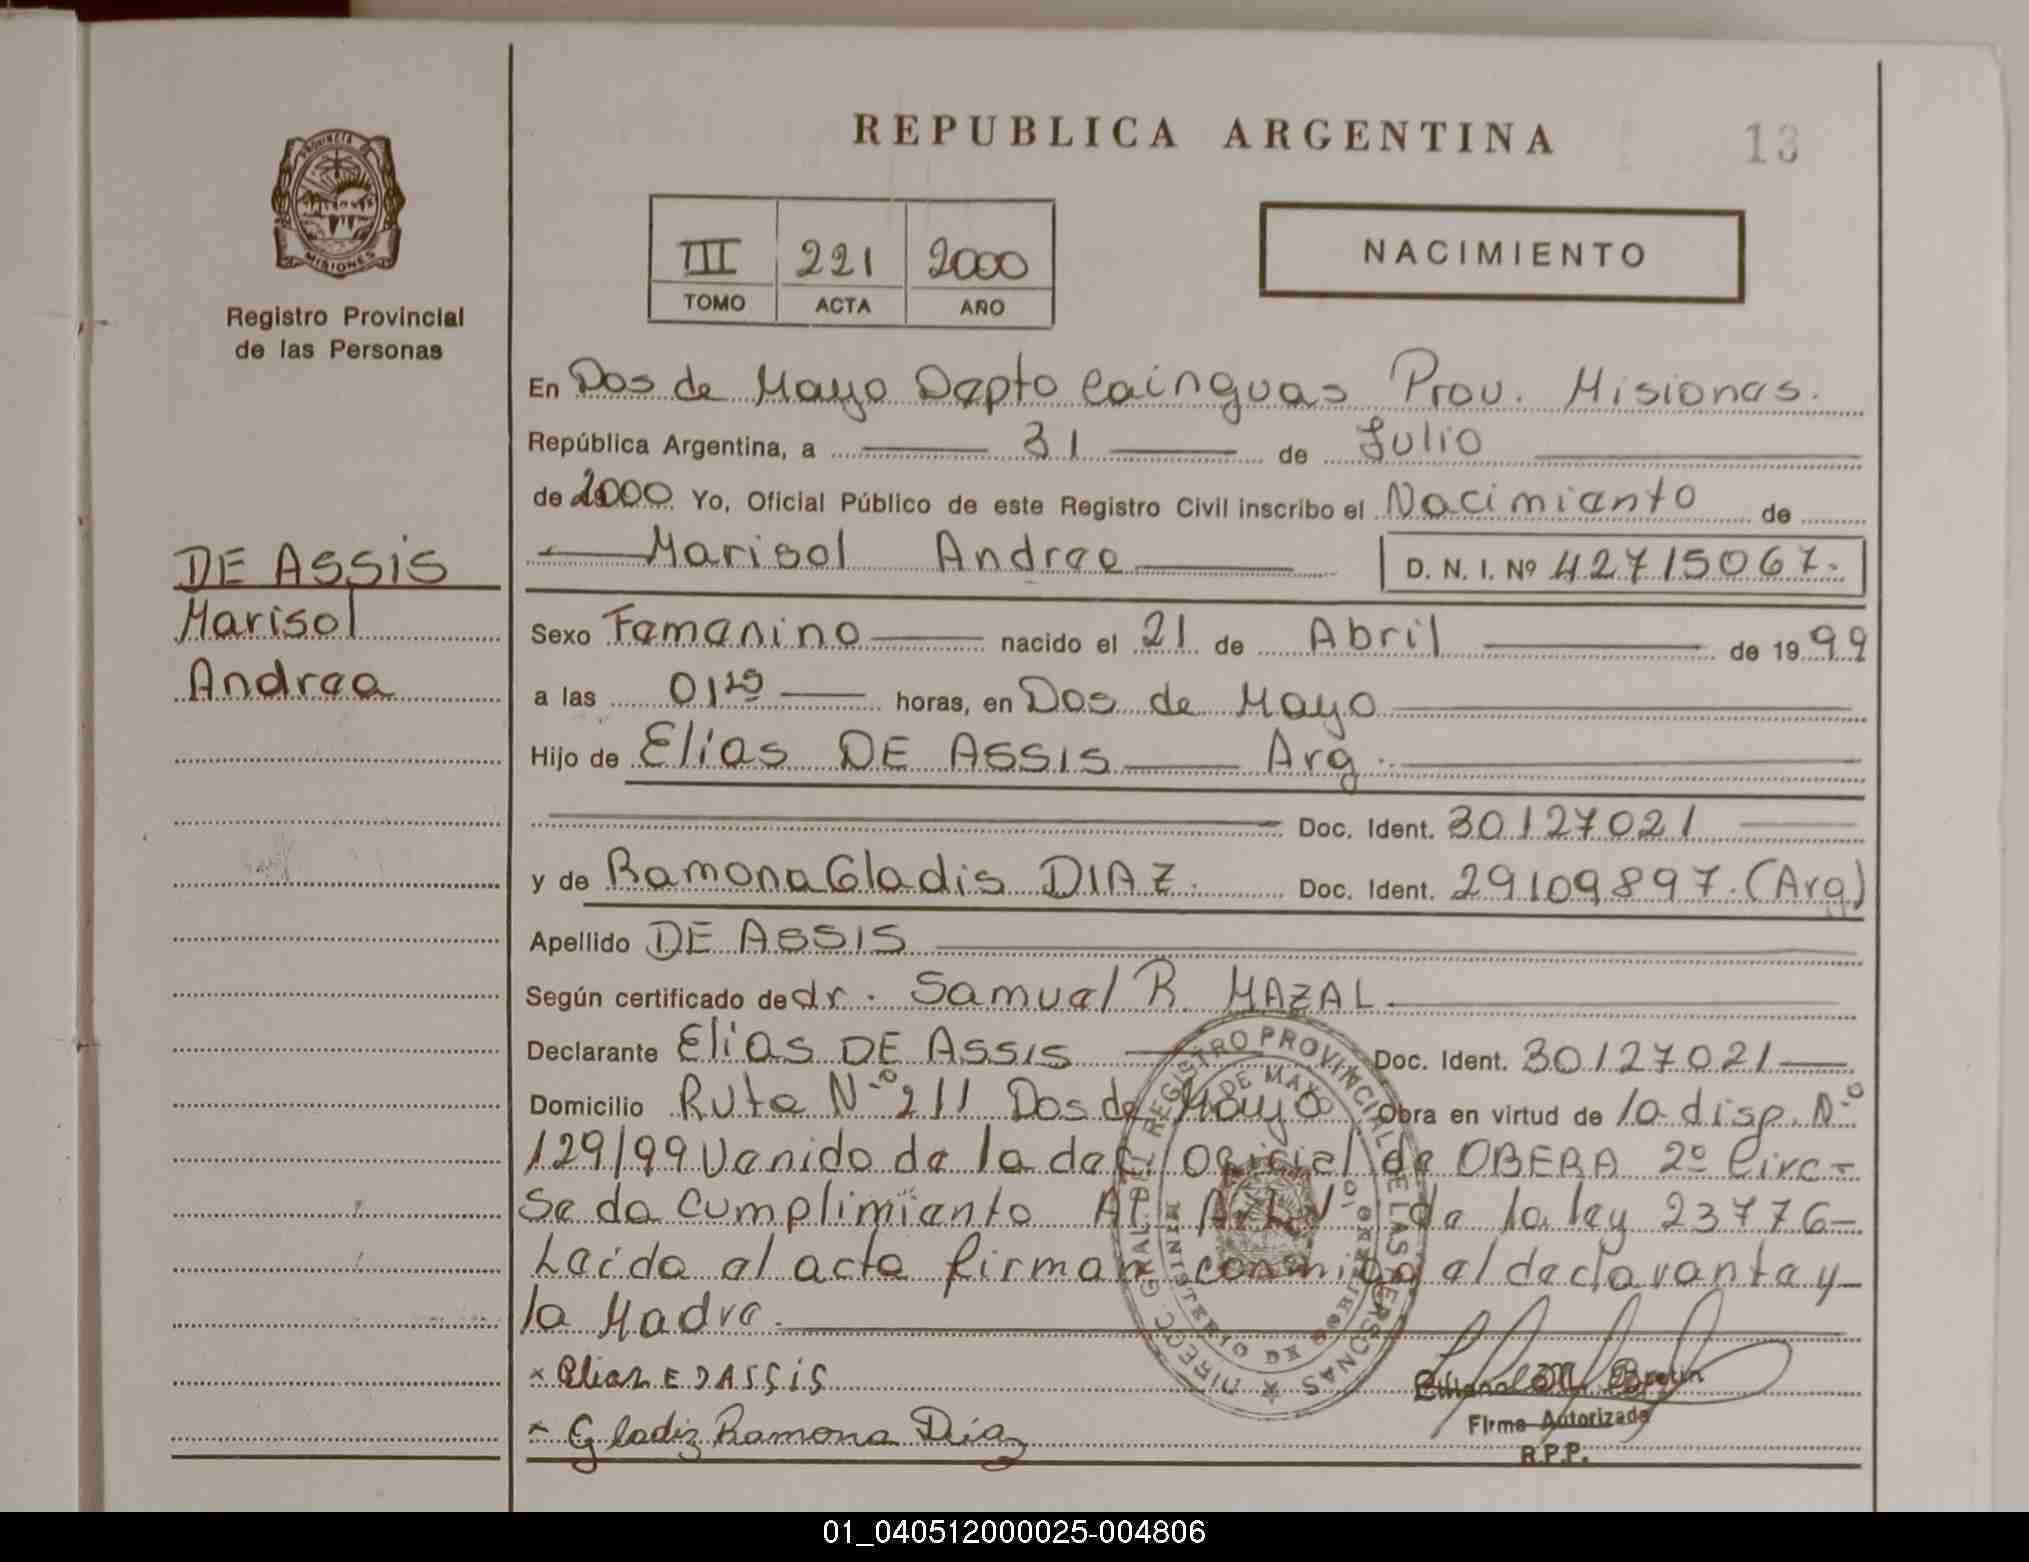 REPUBLICA ARGENTINA
13
PROVINCIA DE
MISIONES
Registro Provincial
de las Personas
III 221 2000
TOMO ACTA AÑO
NACIMIENTO
En Dos de Mayo Depto Cainguas Prov. Misiones.
República Argentina, a 31 de Julio
de 2000 Yo, Oficial Público de este Registro Civil inscribo el Nacimiento de
Marisol Andrea D. N. I. Nº 42715067.
DE ASSIS
Marisol
Andrea
Sexo Femenino nacido el 21 de Abril de 1999
a las 01 horas, en Dos de Mayo
Hijo de Elias DE ASSIS Arg.
Doc. Ident. 30127021
y de Ramona Gladis DIAZ. Doc. Ident. 29109897. (Arg)
Apellido DE ASSIS
Según certificado de dr. Samuel R. MAZAL
Declarante Elias DE ASSIS Doc. Ident. 30127021
Domicilio Ruta Nº 211 Dos de Mayo Obra en virtud de la disp. Nº
129/99 Venido de la del. Oficial de OBERA 2º Circ-
Se da cumplimiento Al Art. 1º de la ley 23776-
Leida el acta firman conmigo el declarante y
la Madre.
x Elias E D ASSIS
x Gladiz Ramona Díaz
Firma Autorizada
R.P.P.
DIRECC. GRAL. DEL REGISTRO PROVINCIAL DE LAS PERSONAS
MINISTERIO DE GOBIERNO
DE MAYO
01_040512000025-004806